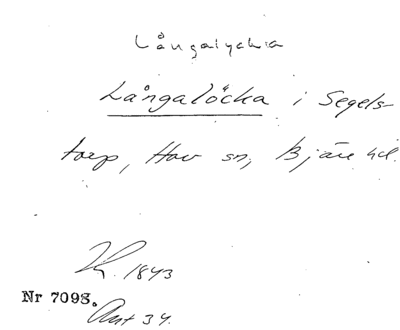 Långalyckia
Långalöcka i Segels-
torp, Hov sn, Bjäre hd.
K. 1843
Nr 7098.
Ant 34.